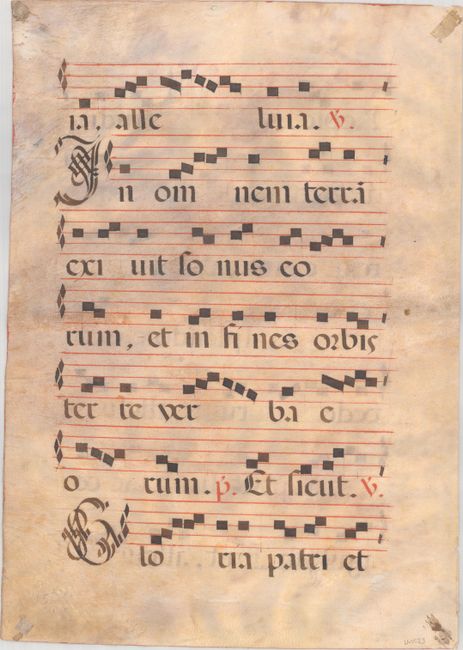 ia, alle luia. ℣.
In om nem terrā
exi uit so nus eo
rum, et in fi nes orbis
ter re ver ba e
o rum. p̄. Et sicut. ℣.
Glo ria patri et